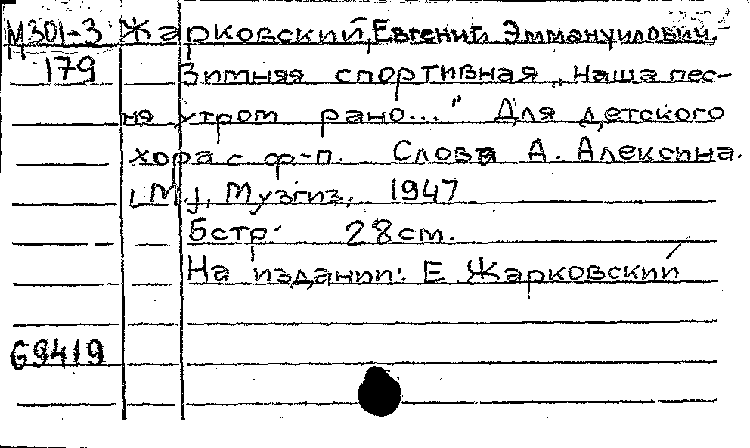 М301-3 Жарковский, Евгений Эммануилович.
179 Зимняя спортивная „Наша пес-
ня утром рано..." Для детского
хора с ф-п. Слова А. Алексина.
[М], Музгиз, 1947
6стр. 28см.
На издании: Е Жарковский
69419